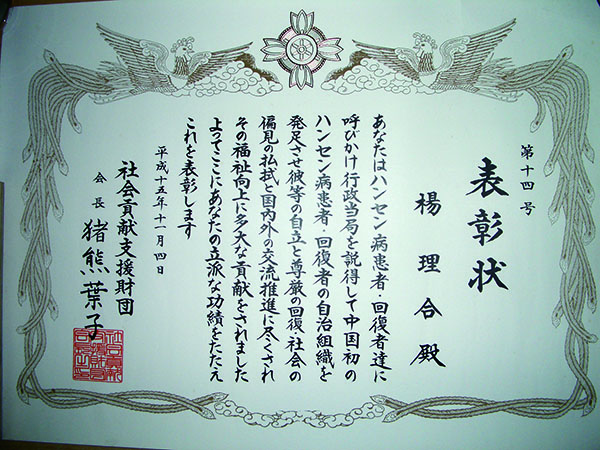 第十四号
表彰状
楊理合殿
あなたはハンセン病患者・回復者達に
呼びかけ行政当局を説得して中国初の
ハンセン病患者・回復者の自治組織を
発足させ彼等の自立と尊厳の回復、社会の
偏見の払拭と国内外の交流推進に尽くされ
その福祉向上に多大な貢献をされました
よってここにあなたの立派な功績をたたえ
これを表彰します
平成十五年十一月四日
社会貢献支援財団
会長 猪熊葉子